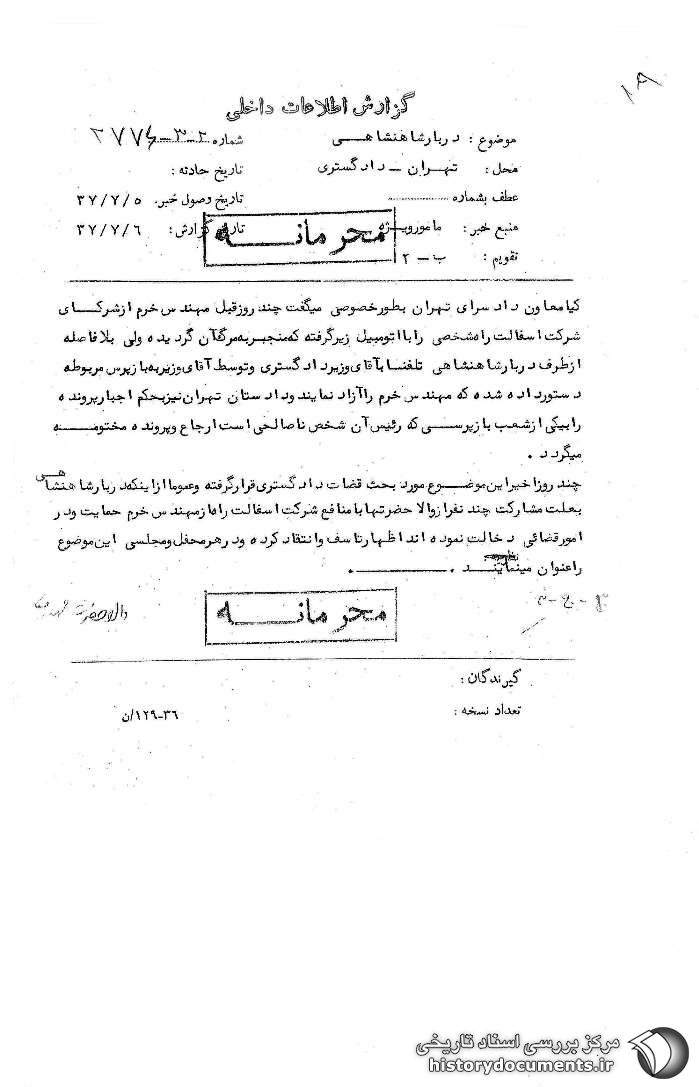 ۸۹
گزارش اطلاعات داخلی
موضوع : دربار شاهنشاهی
شماره ۲-۳-
محل : تهران - دادگستری
تاریخ حادثه :
عطف بشماره
تاریخ وصول خبر. ۳۷/۷/۵
منبع خبر : مامور ویژه
تاریخ گزارش : ۳۷/۷/۶
محرمانه
تقویم : ب - ۲
کیا معاون دادسرای تهران بطور خصوصی میگفت چند روز قبل مهندس خرم از شرکای
شرکت اسفالت راه شخصی را با اتومبیل زیر گرفته که منجر به مرگ آن گردیده ولی بلافاصله
از طرف دربار شاهنشاهی تلفنا به آقای وزیر دادگستری و توسط آقای وزیر به بازپرس مربوطه
دستور داده شده که مهندس خرم را آزاد نمایند و دادستان تهران نیز بحکم اجبار پرونده
را بیکی از شعب بازپرسی که رئیس آن شخص ناصالحی است ارجاع و پرونده مختومه
میگردد .
چند روز اخیر این موضوع مورد بحث قضات دادگستری قرار گرفته و عموما از اینکه دربار شاهنشاهی
بعلت مشارکت چند نفر از والاحضرتها با منافع شرکت اسفالت راه از مهندس خرم حمایت و در
امور قضائی دخالت نموده اند اظهار تاسف و انتقاد کرده و در هر محفل و مجلسی این موضوع
را عنوان مینمایند .
محرمانه
گیرندگان :
تعداد نسخه :
۳۶-۱۲۹/ن
مرکز بررسی اسناد تاریخی
historydocuments.ir